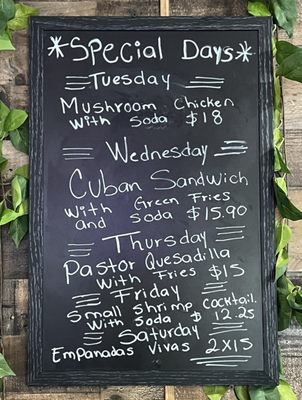 *Special Days*
Tuesday
Mushroom Chicken
With Soda $18
Wednesday
Cuban Sandwich
With Green Fries
and Soda $15.90
Thursday
Pastor Quesadilla
With Fries $15
Friday
Small Shrimp Cocktail.
With Soda $ 12.25
Saturday
Empanadas Vivas 2x15